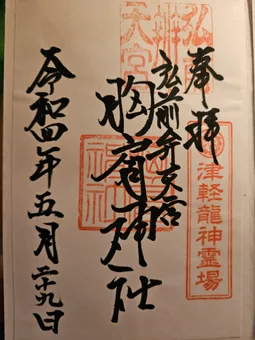 奉拝
津軽龍神霊場
弘前辨天宮
弘前弁天宮
胸肩神社
令和四年五月二十九日